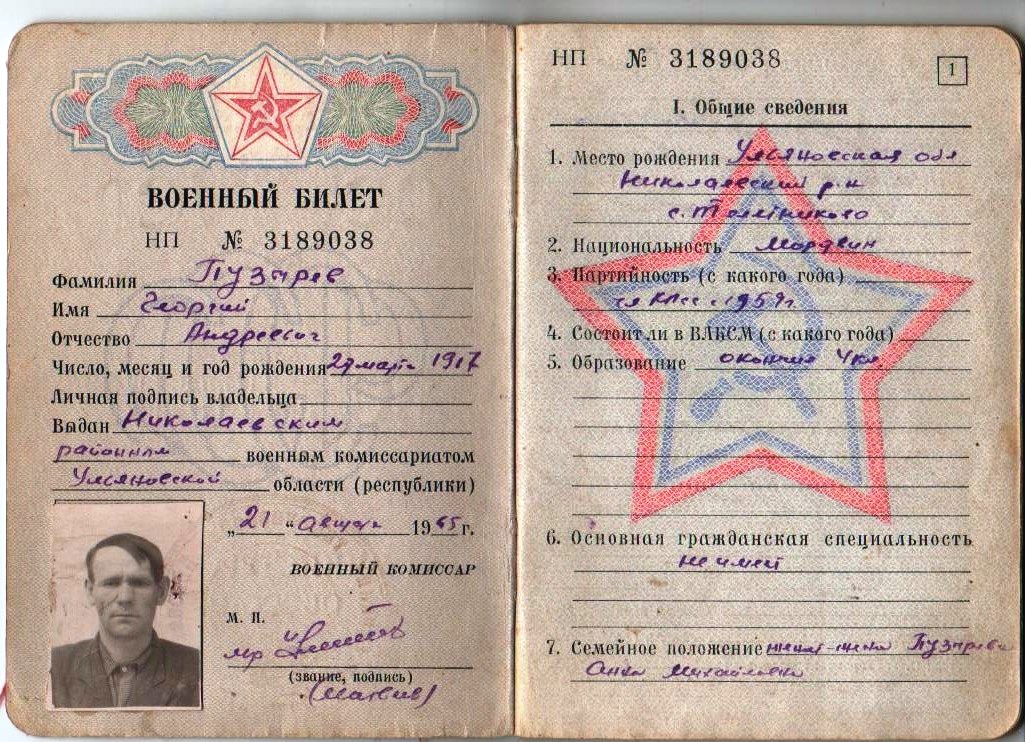 ВОЕННЫЙ БИЛЕТ
НП № 3189038
Фамилия Пузырев
Имя Георгий
Отчество Андреевич
Число, месяц и год рождения 27 марта 1917
Личная подпись владельца
Выдан Николаевским
районным военным комиссариатом
Ульяновской области (республики)
„21“ августа 1965 г.
ВОЕННЫЙ КОМИССАР
М. П.
(звание, подпись)
НП № 3189038
1
I. Общие сведения
1. Место рождения Ульяновская обл
Николаевский р-н
с.
2. Национальность Мордвин
3. Партийность (с какого года)
КПСС с 1959г.
4. Состоит ли в ВЛКСМ (с какого года)
5. Образование окончил 4 кл.
6. Основная гражданская специальность
не имеет
7. Семейное положение женат-жена Пузырева
Анна Михайловна